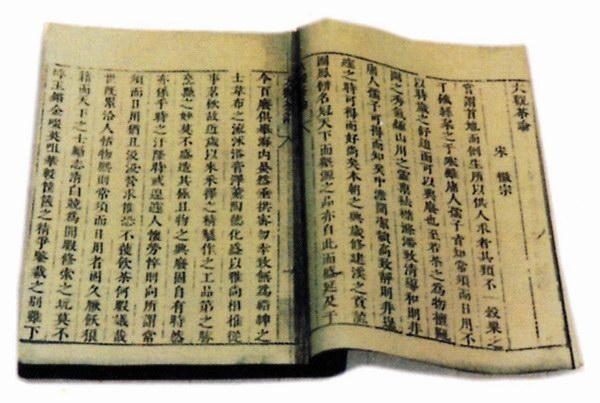 大觀茶論
宋 徽宗
嘗謂首地而倒生所以供人求者其類不一穀粟之
于饑絲枲之于寒雖庸人孺子皆知常須而日用不
以時歲之舒迫而可以興廢也至若茶之為物擅甌
閩之秀氣鍾山川之靈稟祛襟滌滯致清導和則非
庸人孺子可得而知矣中澹間潔韻高致靜則非遑
遽之時可得而好尚矣本朝之興歲修建溪之貢龍
團鳳餅名冠天下而壑源之品亦自此而盛延及于
今百廢俱舉海內晏然垂拱密勿幸致無為縉紳之
士韋布之流沐浴膏澤薰陶德化盛以雅尚相推從
事茗飲故近歲以來采擇之精製作之工品第之勝
烹點之妙莫不盛造其極且物之興廢固自有時然
亦係乎時之汙隆時或遑遽人懷勞悴則向所謂常
須而日用猶且汲汲營求惟恐不獲飲茶何暇議哉
世既累洽人恬物熙則常須而日用者固久厭飫狼
籍而天下之士勵志清白競為閒暇修索之玩莫不
碎玉鏘金啜英咀華較筐篋之精爭鑒裁之別雖下